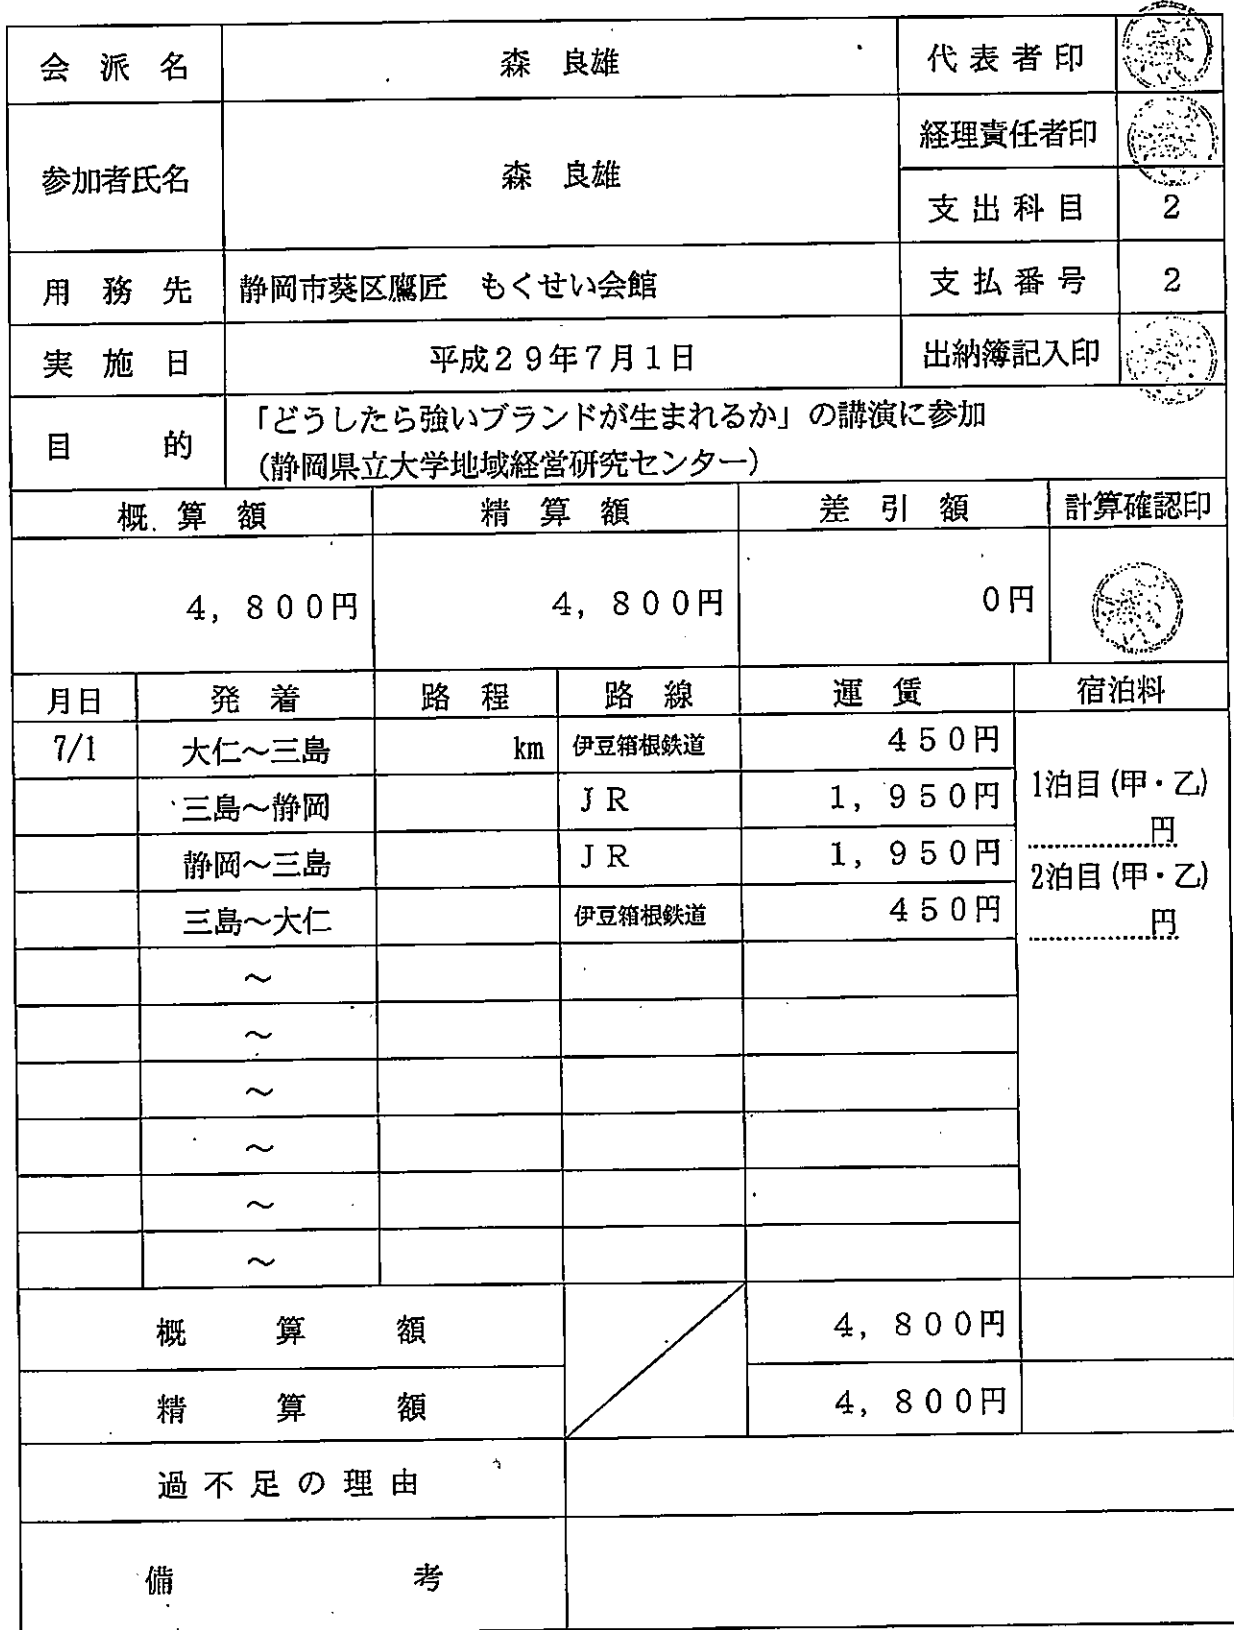 会派名 森 良雄 代表者印
参加者氏名 森 良雄 経理責任者印
支出科目 2
用務先 静岡市葵区鷹匠 もくせい会館 支払番号 2
実施日 平成29年7月1日 出納簿記入印
目的 「どうしたら強いブランドが生まれるか」の講演に参加
(静岡県立大学地域経営研究センター)
概算額 精算額 差引額 計算確認印
4,800円 4,800円 0円
月日 発着 路程 路線 運賃 宿泊料
7/1 大仁～三島 km 伊豆箱根鉄道 450円
三島～静岡 JR 1,950円 1泊目(甲・乙)
円
静岡～三島 JR 1,950円
2泊目(甲・乙)
三島～大仁 伊豆箱根鉄道 450円 円
～
～
～
～
～
～
概算額 4,800円
精算額 4,800円
過不足の理由
備考